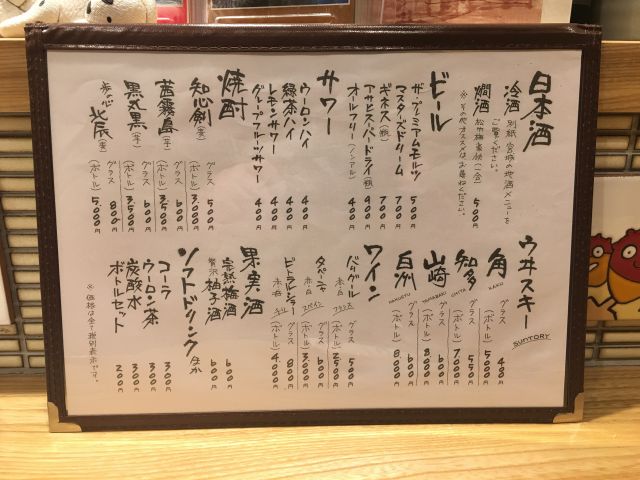 日本酒
冷酒 別紙 宮城の地酒メニューを
ご覧ください。
燗酒 500円
※その他オススメはお尋ねください。
ビール
ザ・プレミアムモルツ 500
マスターズドリーム 700
ギネス(瓶) 700円
アサヒスーパードライ(瓶) 900円
オールフリー(ノンアル) 400円
サワー
ウーロンハイ 400
緑茶ハイ 400
レモンサワー 400
グレープフルーツサワー 400
焼酎
知心剣(麦) グラス 500円
(ボトル) 3.000円
茜霧島(芋) グラス 600円
(ボトル) 3500円
黒丸黒(芋) グラス 600円
(ボトル) 3500円
北辰(麦) グラス 800円
(ボトル) 5.000円
ウヰスキー
SUNTORY
角 KAKU グラス 400円
(ボトル) 5000円
知多 CHITA グラス 550円
(ボトル) 7000円
山崎 YAMAZAKI グラス 600円
(ボトル) 8000円
白州 HAKUSYU グラス 600円
(ボトル) 8.000円
ワイン
グラス 500円
赤・白 フランス (ボトル) 2500円
タパーニャ グラス 600円
赤・白 スペイン (ボトル) 3.000円
グラス 800円
赤・白 チリ (ボトル) 4.000円
果実酒
完熟梅酒 600円
贅沢 柚子酒 600円
ソフトドリンクほか
コーラ 300円
ウーロン茶 300円
炭酸水 300円
ボトルセット 200円
※価格は全て税別表示です。